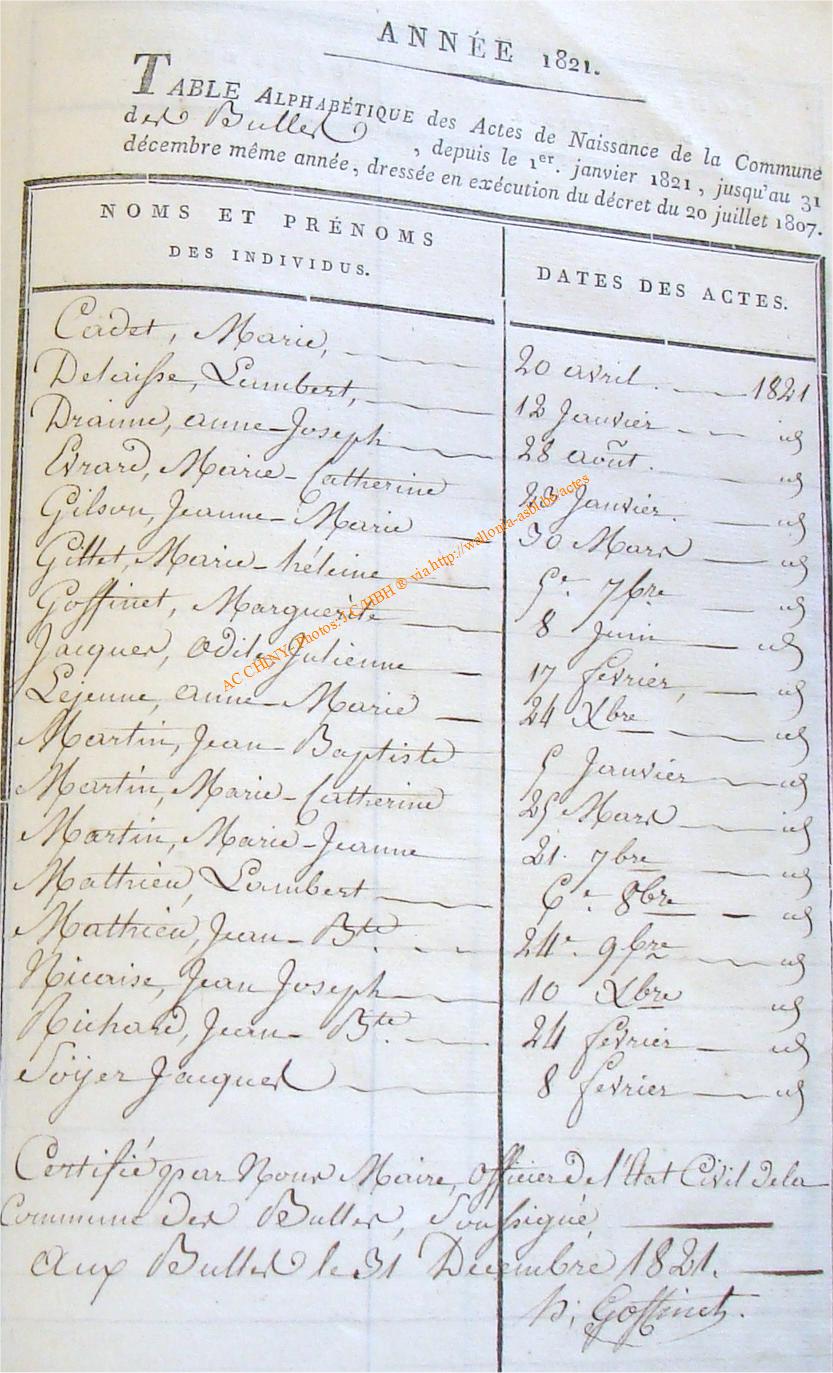 ANNÉE 1821.
TABLE ALPHABÉTIQUE des Actes de Naissance de la Commune
des Bulles, depuis le 1er. janvier 1821, jusqu'au 31
décembre même année, dressée en exécution du décret du 20 juillet 1807.
NOMS ET PRÉNOMS
DES INDIVIDUS.
DATES DES ACTES.
Cadet, Marie, 20 avril. 1821
Delaisse, Lambert, 12 Janvier id
Draime, anne-Joseph 28 août. id
Evrard, Marie-Catherine 23 Janvier. id
Gilson, Jeanne-Marie 30 Mars id
Gillet, Marie-héleine 5e. 7bre id
Goffinet, Marguerite 8 Juin id
Jacques, Odile Julienne 17 fevrier, id
Lejeune, anne-Marie 24 Xbre id
Martin, Jean-Baptiste 5 Janvier id
Martin, Marie-Catherine 25 Mars id
Martin, Marie-Jeanne 21. 7bre id
Mathieu, Lambert 6e. 8bre id
Mathieu, Jean-Bte. 24e. 9bre id
Nicaise, Jean Joseph 10 Xbre id
Richard, Jean-Bte. 24 fevrier id
Soÿer Jacques 8 fevrier id
Certifié par Nous Maire, officier de l'Etat Civil de la
Commune des Bulles, Soussigné,
Aux Bulles le 31 Decembre 1821.
h; Goffinet.
AC CHINY, Photos: LC/HBH ® via http://wallonia-asbl.be/actes